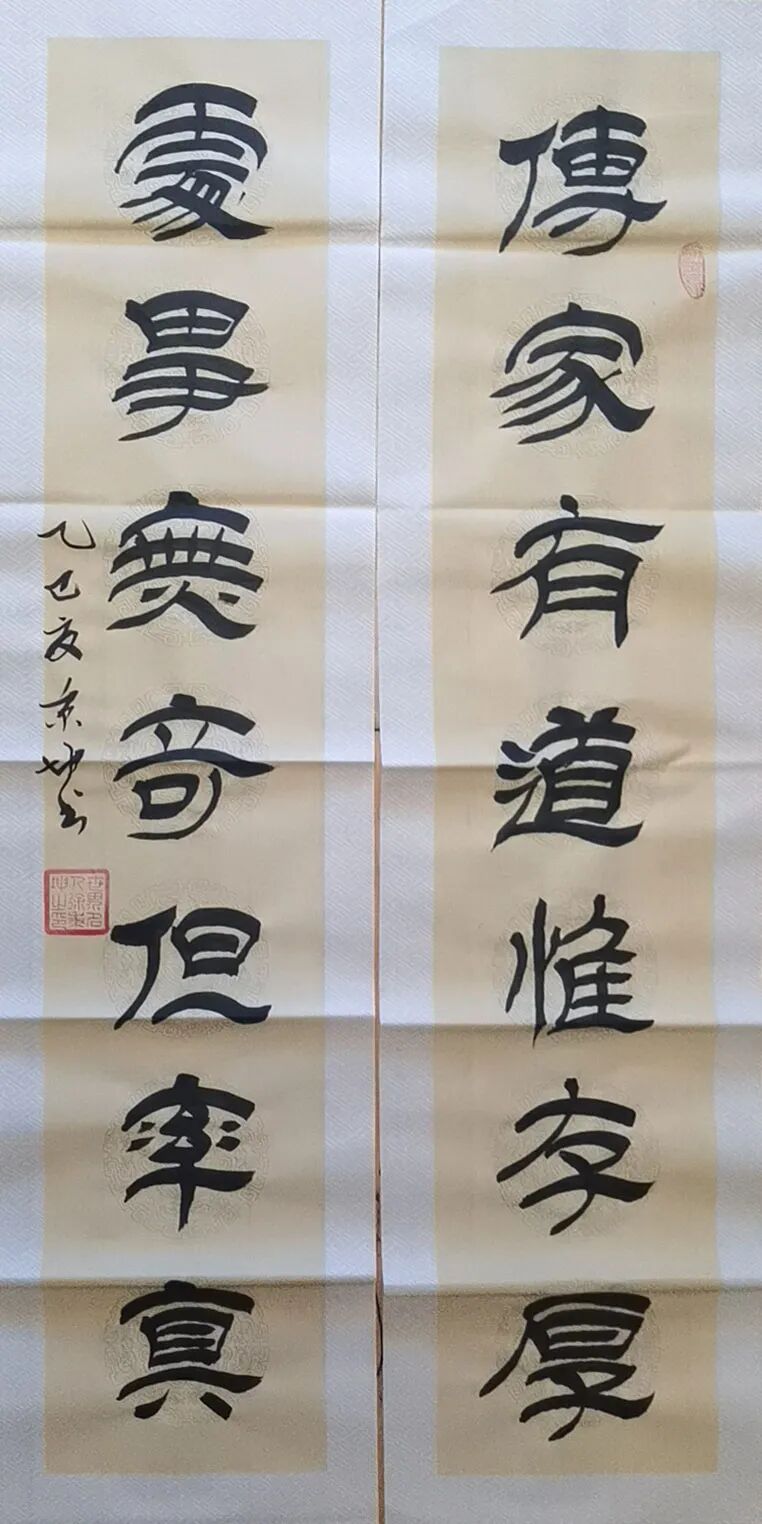 傳家有道惟存厚
處事無奇但率真
乙巳夏京坤书